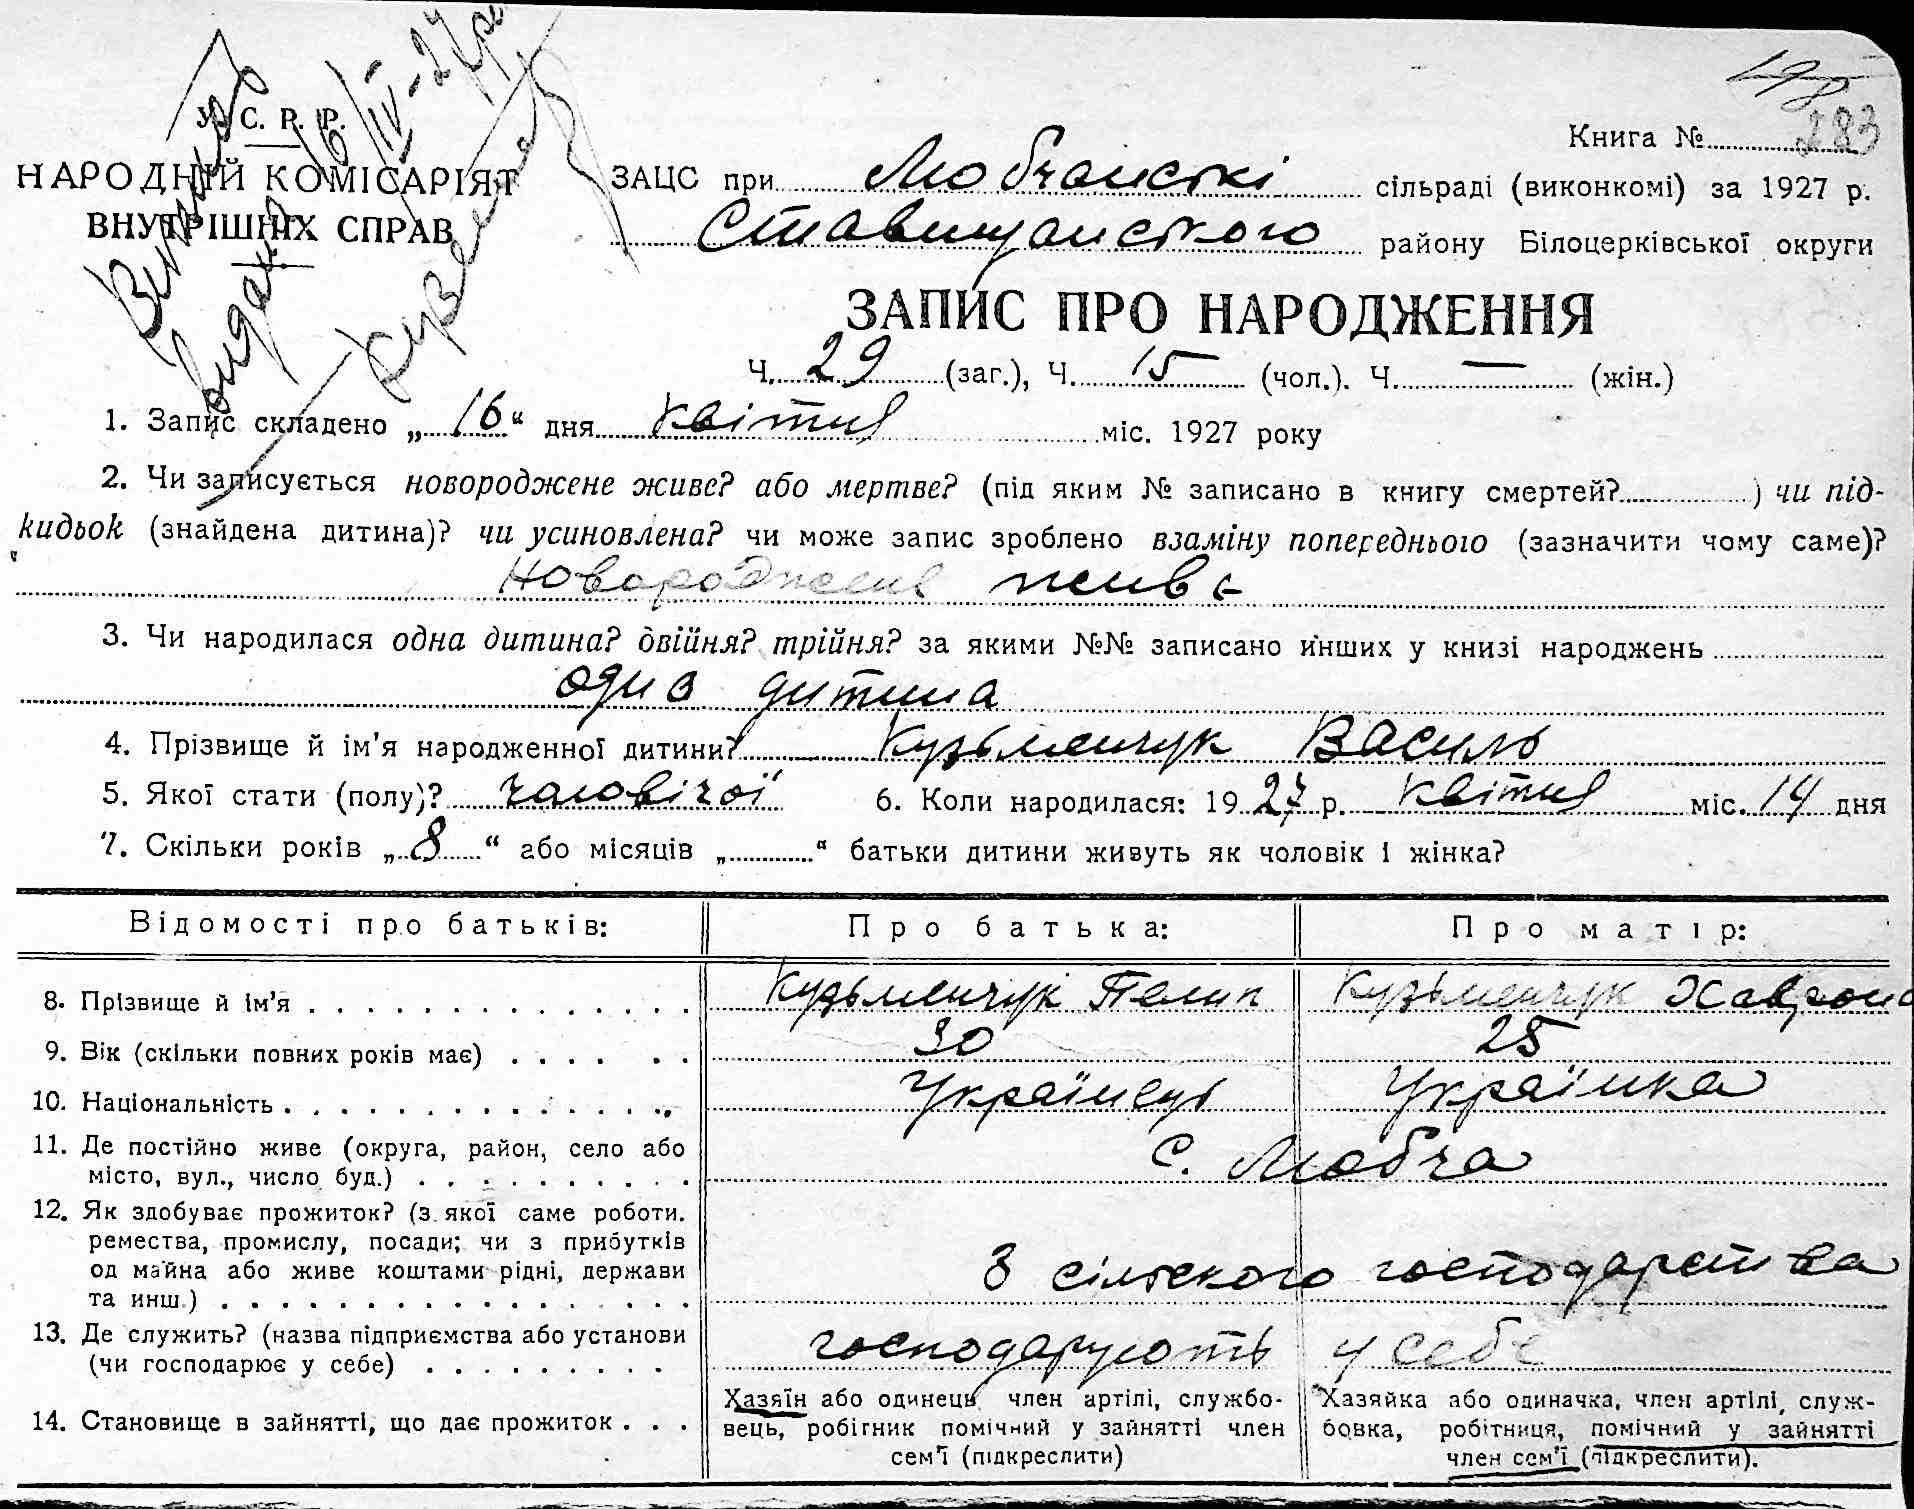 198
283
У. С. Р. Р.
НАРОДНІЙ КОМІСАРІЯТ
ВНУТРІШНІХ СПРАВ
Виписъ
видано 16/IV-27р
Книга №
ЗАЦС при Любчанські сільраді (виконкомі) за 1927 р.
Ставищанського району Білоцерківської округи
ЗАПИС ПРО НАРОДЖЕННЯ
Ч. 29 (заг.), Ч. 15 (чол.). Ч. — (жін.)
1. Запис складено „16“ дня Квітня міс. 1927 року
2. Чи записується новороджене живе? або мертве? (під яким № записано в книгу смертей? ) чи під-
кидьок (знайдена дитина)? чи усиновлена? чи може запис зроблено взаміну попереднього (зазначити чому саме)?
Новороджене живе
3. Чи народилася одна дитина? двійня? трійня? за якими №№ записано инших у книзі народжень
одна дитина
4. Прізвище й ім'я народженної дитини? Кузьменчук Василь
5. Якої стати (полу)? чоловічої 6. Коли народилася: 1927 р. Квітня міс. 14 дня
7. Скільки років „8“ або місяців „ “ батьки дитини живуть як чоловік і жінка?
Відомості про батьків: Про батька: Про матір:
8. Прізвище й ім'я Кузьменчук Пелип Кузьменчук Хавроня
9. Вік (скільки повних років має) 30 25
10. Національність Українець Українка
11. Де постійно живе (округа, район, село або
місто, вул., число буд.) с. Любча
12. Як здобуває прожиток? (з якої саме роботи.
ремества, промислу, посади; чи з прибутків
од майна або живе коштами рідні, держави
та инш.) З сільского господарства
13. Де служить? (назва підприємства або установи
(чи господарює у себе) господарують у себе
14. Становище в зайнятті, що дає прожиток
Хазяїн або одинець, член артілі, службо-
вець, робітник помічний у зайнятті член
сем'ї (підкреслити)
Хазяйка або одиначка, член артілі, служ-
бовка, робітниця, помічний у зайнятті
член сем'ї (підкреслити).